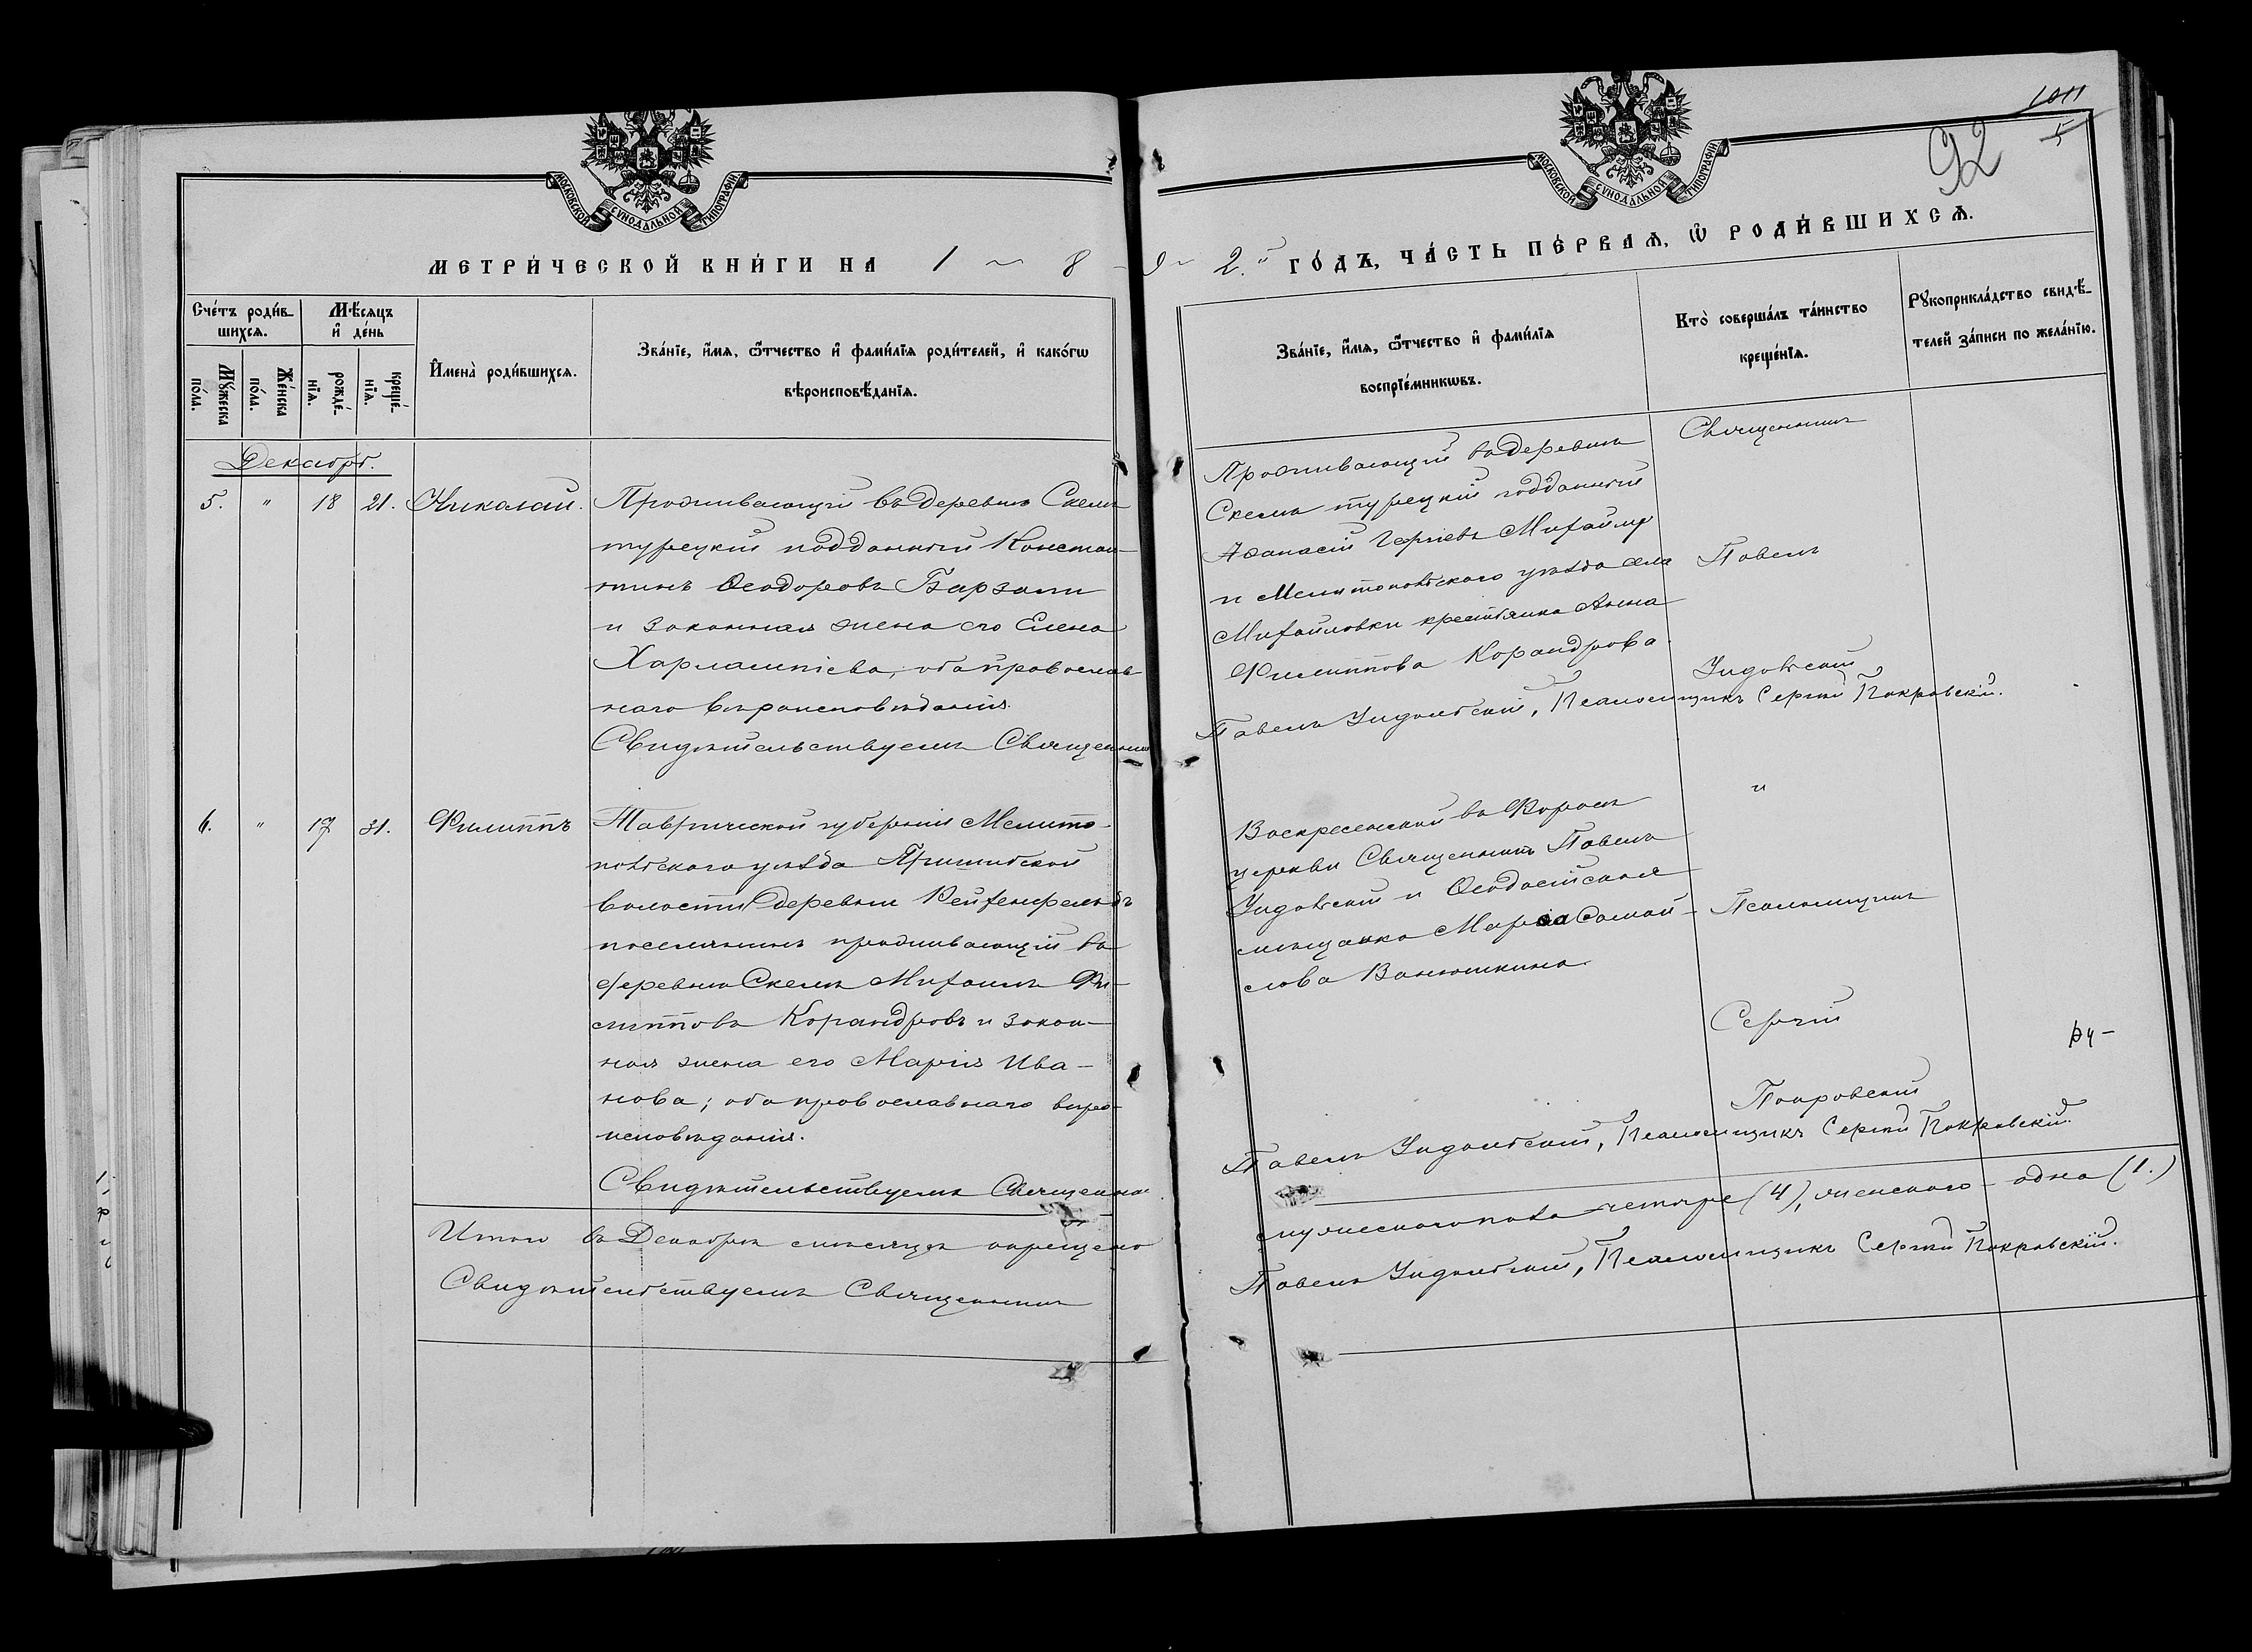 МОСКОВСКОЙ СѴНОДАЛЬНОЙ ТИПОГРАФІИ
МЕТРИ́ЧЕСКОЙ КНИ́ГИ НА 1 8
Сче́тъ роди́в-
шихсѧ.
Мѣ́сяцъ
и҆ де́нь
Мꙋ́жеска
по́ла.
Же́нска
по́ла.
рожде́-
нїѧ.
креще́-
нїѧ.
И҆мена̀ роди́вшихсѧ.
Зва́нїе, и҆́мѧ, ѻ҆́тчество и҆ фами́лїѧ роди́телей, и҆ како́гѡ
вѣроисповѣ́данїѧ.
Декабрь.
5. " 18 21. Николай.
Проживающій въ деревнѣ Скели
турецкій подданный Констан-
тинъ Ѳеодоровъ Барзали
и законная жена его Елена
Харлампіева, оба православ
наго вѣроисповѣданія.
Свидѣтельствуемъ Священникъ
6. " 17 31. Филиппъ
Таврической губерніи Мелито-
польскаго уѣзда Пришибской
волости деревни Рейхенфельдъ
поселянинъ проживающій въ
деревнѣ Скели Михаилъ Фи-
липповъ Корандровъ и закон-
ная жена его Марія Ива-
нова; оба православнаго вѣро-
исповѣданія.
Свидѣтельствуемъ Священникъ
Итого въ Декабрѣ мѣсяцѣ окрещено
Свидѣтельствуемъ Священникъ
МОСКОВСКОЙ СѴНОДАЛЬНОЙ ТИПОГРАФІИ
92
9 2. ГО́ДЪ, ЧА́СТЬ ПЕ́РВАѦ, Ѡ҆ РОДИ́ВШИХСѦ.
Зва́нїе, и҆́мѧ, ѻ҆́тчество и҆ фами́лїѧ
воспрїе́мникѡвъ.
Кто̀ соверша́лъ та́инство
креще́нїѧ.
Рꙋкоприкла́дство свидѣ́-
телей за́писи по жела́нїю.
Проживающій въ деревнѣ
Скели турецкій подданный
Аѳанасій Михаилъ
и Мелитопольскаго уѣзда села
Михайловки крестьянка Анна
Филиппова Корандрова.
Священникъ
Павелъ
Ундольскій
Павелъ Ундольскій, Псаломщикъ Сергій Покровскій.
Воскресенской въ Форосѣ
церкви Священникъ Павелъ
Ундольскій и Ѳеодосійская
мѣщанка Марѳа Самой-
лова Ванюшкина.
и
Псаломщикъ
Сергій
Покровскій
Павелъ Ундольскій, Псаломщикъ Сергій Покровскій.
мужескаго пола четыре (4), женскаго - одна (1.)
Павелъ Ундольскій, Псаломщикъ Сергій Покровскій.